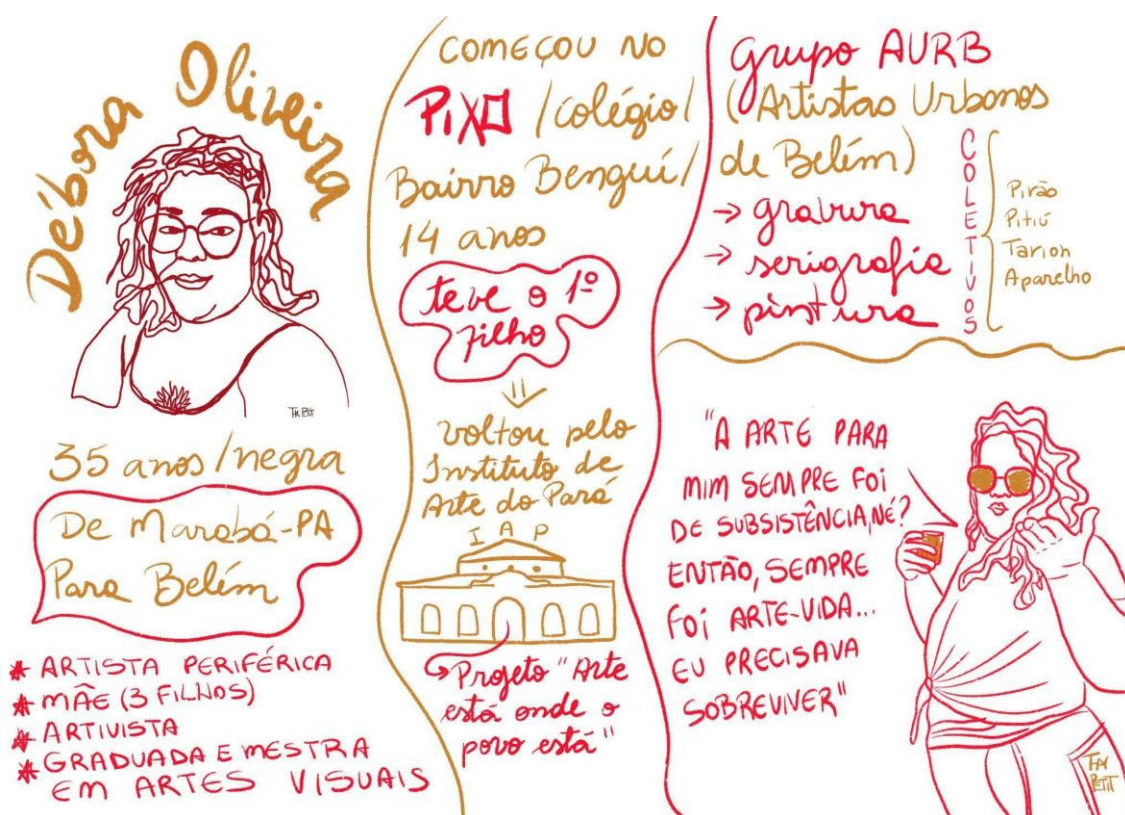 Débora Oliveira
TAI PETIT
35 anos/negra
De Marabá-PA
Para Belém
* ARTISTA PERIFÉRICA
* MÃE (3 FILHOS)
* ARTIVISTA
* GRADUADA E MESTRA
EM ARTES VISUAIS
COMEÇOU NO
PIXO /colégio/
Bairro Benguí/
14 anos
teve o 1º
filho
voltou pelo
Instituto de
Arte do Pará
I A P
Projeto "Arte
está onde o
povo está"
Grupo AURB
(Artistas Urbanos
de Belém)
→ gravura
→ serigrafia
→ pintura
COLETIVOS
Pirão
Pitiú
Tarion
Aparelho
"A ARTE PARA
MIM SEMPRE FOI
DE SUBSISTÊNCIA, NÉ?
ENTÃO, SEMPRE
FOI ARTE-VIDA...
EU PRECISAVA
SOBREVIVER"
TAI
PETIT